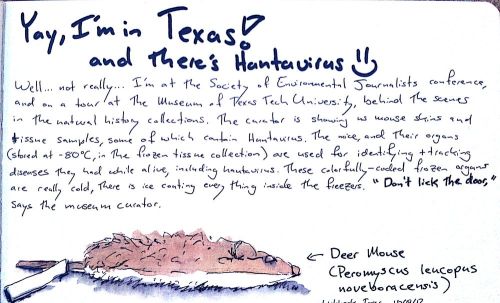 Yay, I'm in Texas!
and there's Hantavirus!
Well... not really... I'm at the Society of Environmental Journalists conference,
and on a tour at the Museum of Texas Tech University, behind the scenes
in the natural history collections. The curator is showing us mouse skins and
tissue samples, some of which contain Hantavirus. The mice, and their organs
(stored at -80°C, in the frozen tissue collection) are used for identifying + tracking
diseases they had while alive, including hantavirus. These colorfully-coded frozen organs
are really cold, there is ice coating every thing inside the freezers. "Don't lick the door,"
says the museum curator.
← Deer Mouse
(Peromyscus leucopus
noveboracensis)